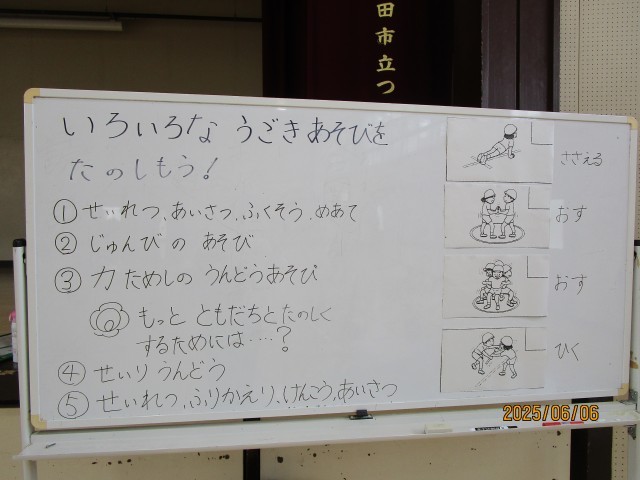 田市立つ
いろいろな うごきあそびを
たのしもう!
① せいれつ、あいさつ、ふくそう、めあて
② じゅんび の あそび
③ 力ためしの うんどうあそび
もっと ともだちと たのしく
するためには‥‥?
④ せいり うんどう
⑤ せいれつ、ふりかえり、けんこう、あいさつ
ささえる
おす
おす
ひく
2025/06/06